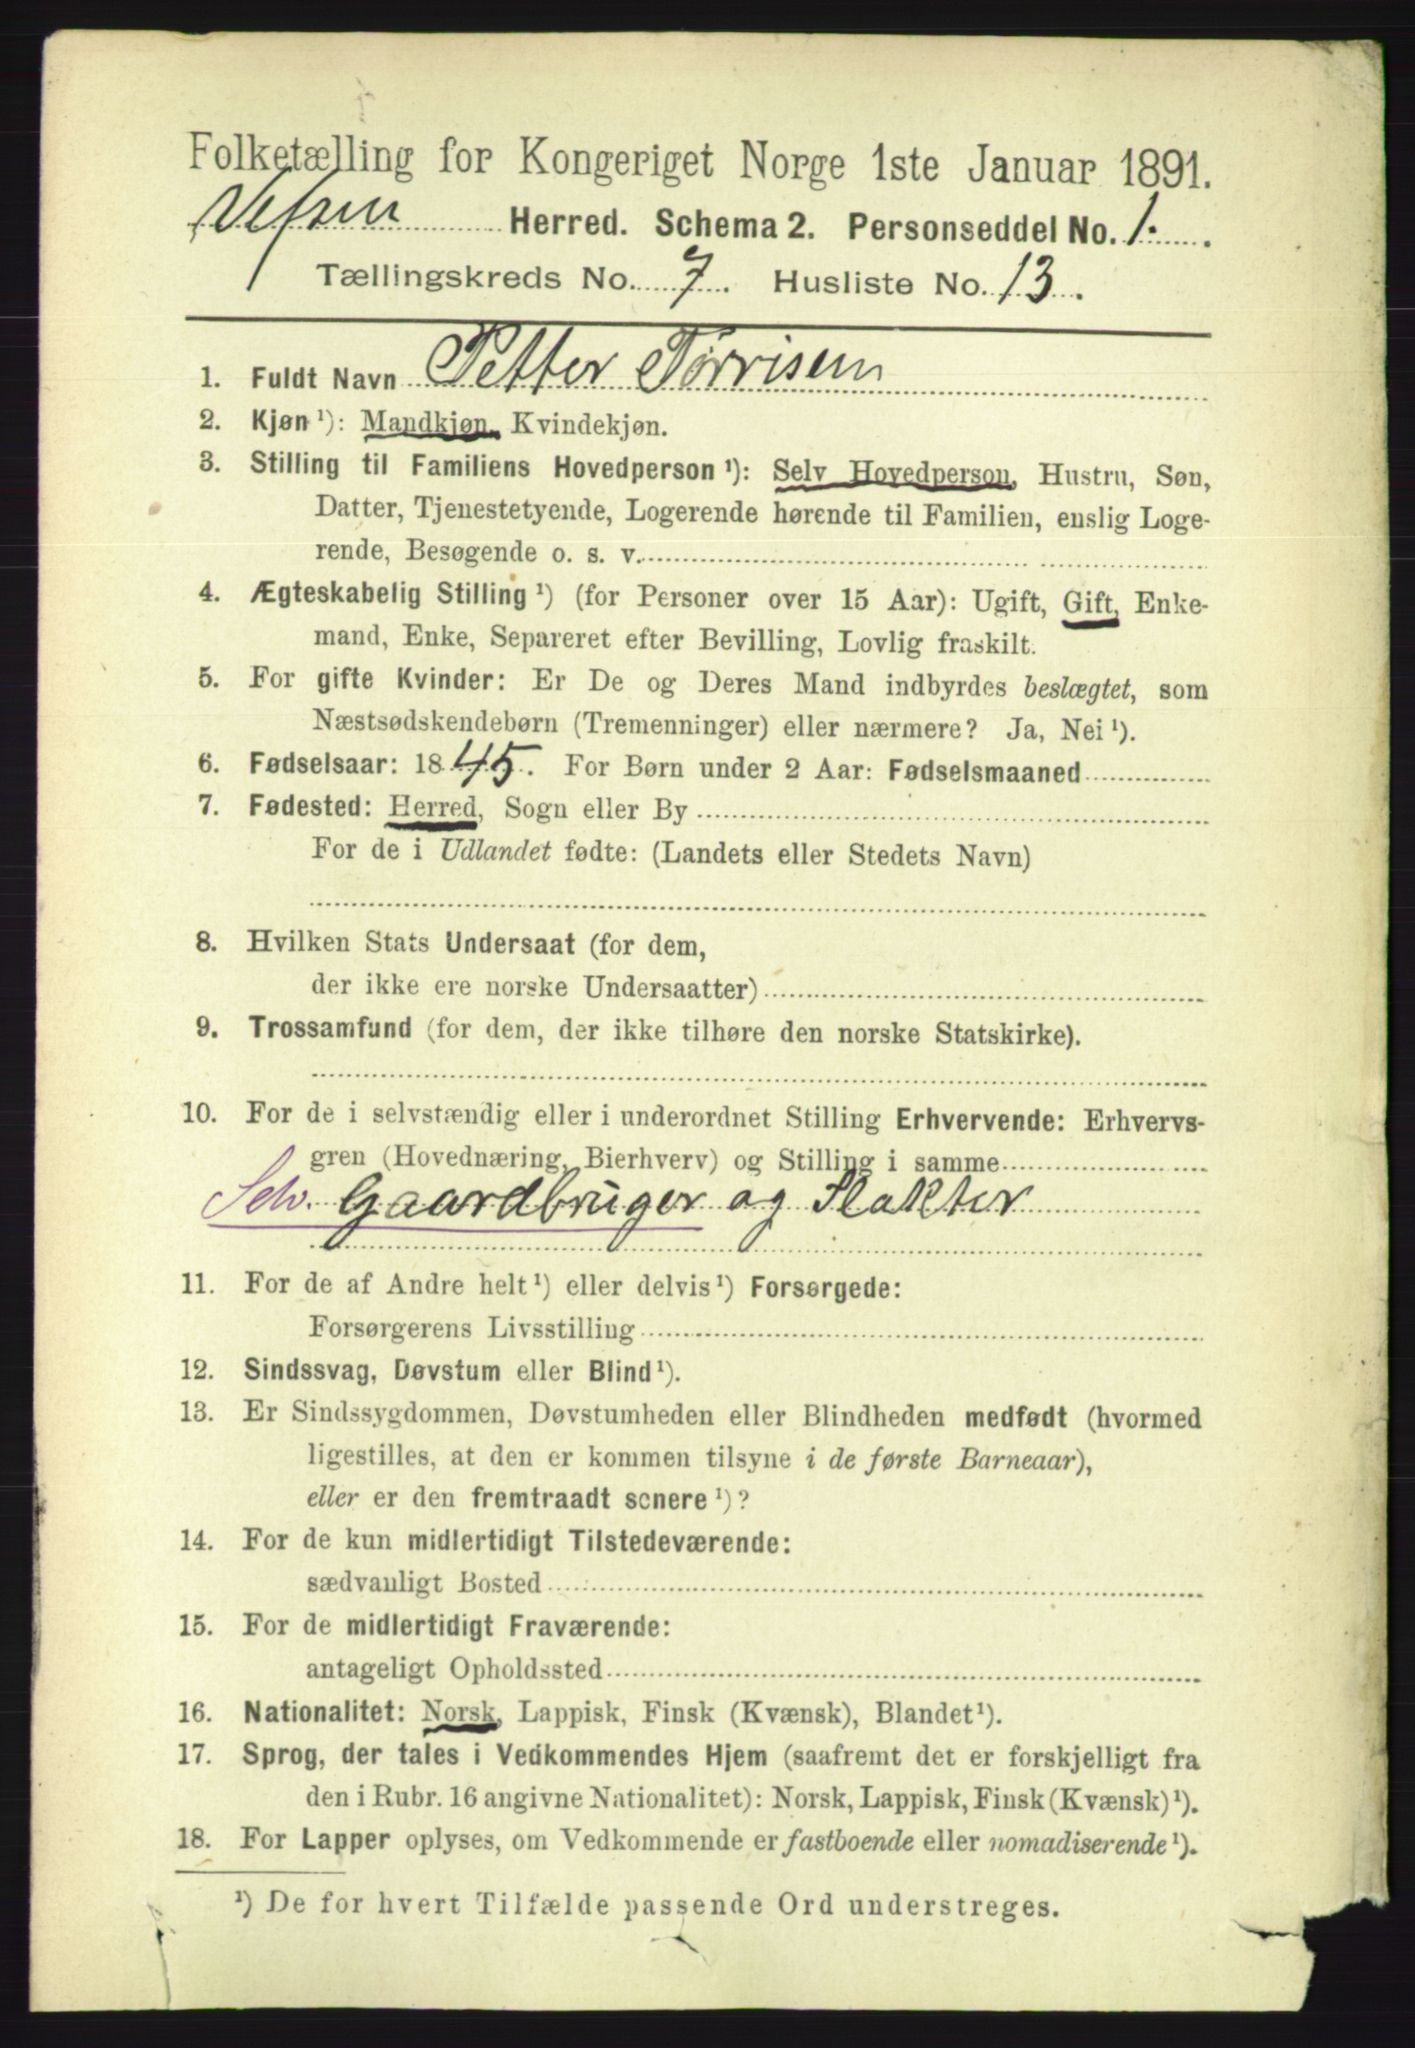 Folketælling for Kongeriget Norge 1ste Januar 1891.
Vefsen Herred. Schema 2. Personseddel No. 1.
Tællingskreds No. 7. Husliste No. 13.
1. Fuldt Navn Petter Tørrisen
2. Kjøn ¹): Mandkjøn, Kvindekjøn.
3. Stilling til Familiens Hovedperson ¹): Selv Hovedperson, Hustru, Søn,
Datter, Tjenestetyende, Logerende hørende til Familien, enslig Loge-
rende, Besøgende o. s. v.
4. Ægteskabelig Stilling ¹) (for Personer over 15 Aar): Ugift, Gift, Enke-
mand, Enke, Separeret efter Bevilling, Lovlig fraskilt.
5. For gifte Kvinder: Er De og Deres Mand indbyrdes beslægtet, som
Næstsødskendebørn (Tremenninger) eller nærmere? Ja, Nei ¹).
6. Fødselsaar: 1845. For Børn under 2 Aar: Fødselsmaaned
7. Fødested: Herred, Sogn eller By
For de i Udlandet fødte: (Landets eller Stedets Navn)
8. Hvilken Stats Undersaat (for dem,
der ikke ere norske Undersaatter)
9. Trossamfund (for dem, der ikke tilhøre den norske Statskirke).
10. For de i selvstændig eller i underordnet Stilling Erhvervende: Erhvervs-
gren (Hovednæring, Bierhverv) og Stilling i samme
Selv. Gaardbruger og Slakter
11. For de af Andre helt ¹) eller delvis ¹) Forsørgede:
Forsørgerens Livsstilling
12. Sindssvag, Døvstum eller Blind ¹).
13. Er Sindssygdommen, Døvstumheden eller Blindheden medfødt (hvormed
ligestilles, at den er kommen tilsyne i de første Barneaar),
eller er den fremtraadt senere ¹)?
14. For de kun midlertidigt Tilstedeværende:
sædvanligt Bosted
15. For de midlertidigt Fraværende:
antageligt Opholdssted
16. Nationalitet: Norsk, Lappisk, Finsk (Kvænsk), Blandet ¹).
17. Sprog, der tales i Vedkommendes Hjem (saafremt det er forskjelligt fra
den i Rubr. 16 angivne Nationalitet): Norsk, Lappisk, Finsk (Kvænsk) ¹).
18. For Lapper oplyses, om Vedkommende er fastboende eller nomadiserende ¹).
¹) De for hvert Tilfælde passende Ord understreges.